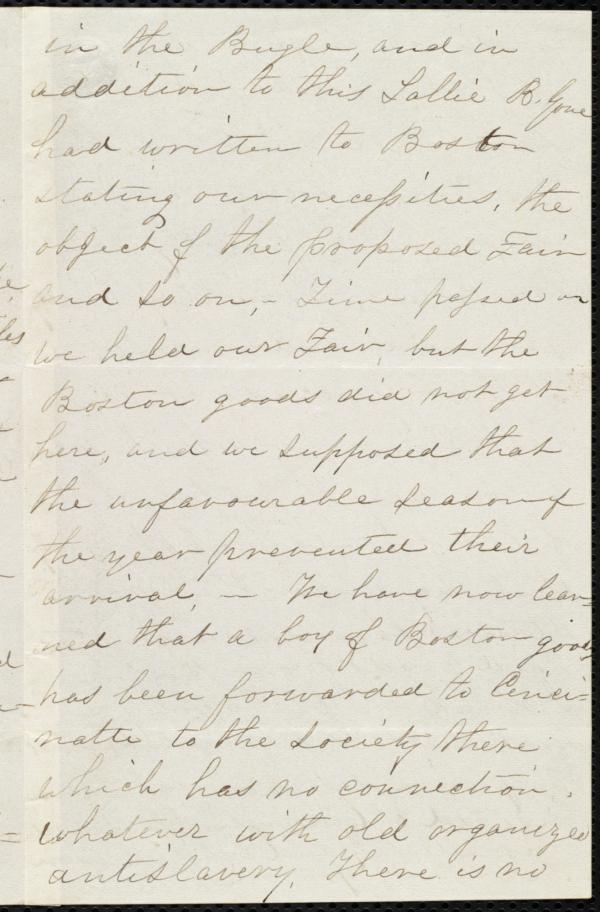 in the Bugle, and in
addition to this Sallie B. Gove
had written to Boston
stating our necessities, the
object of the proposed Fair
and so on, – Time passed on
we held our Fair, but the
Boston goods did not get
here, and we supposed that
the unfavourable season of
the year prevented their
arrival, – We have now lear=
ned that a box of Boston goods
has been forwarded to Cinci=
natti to the Society there
which has no connection
whatever with old organized
antislavery. There is no